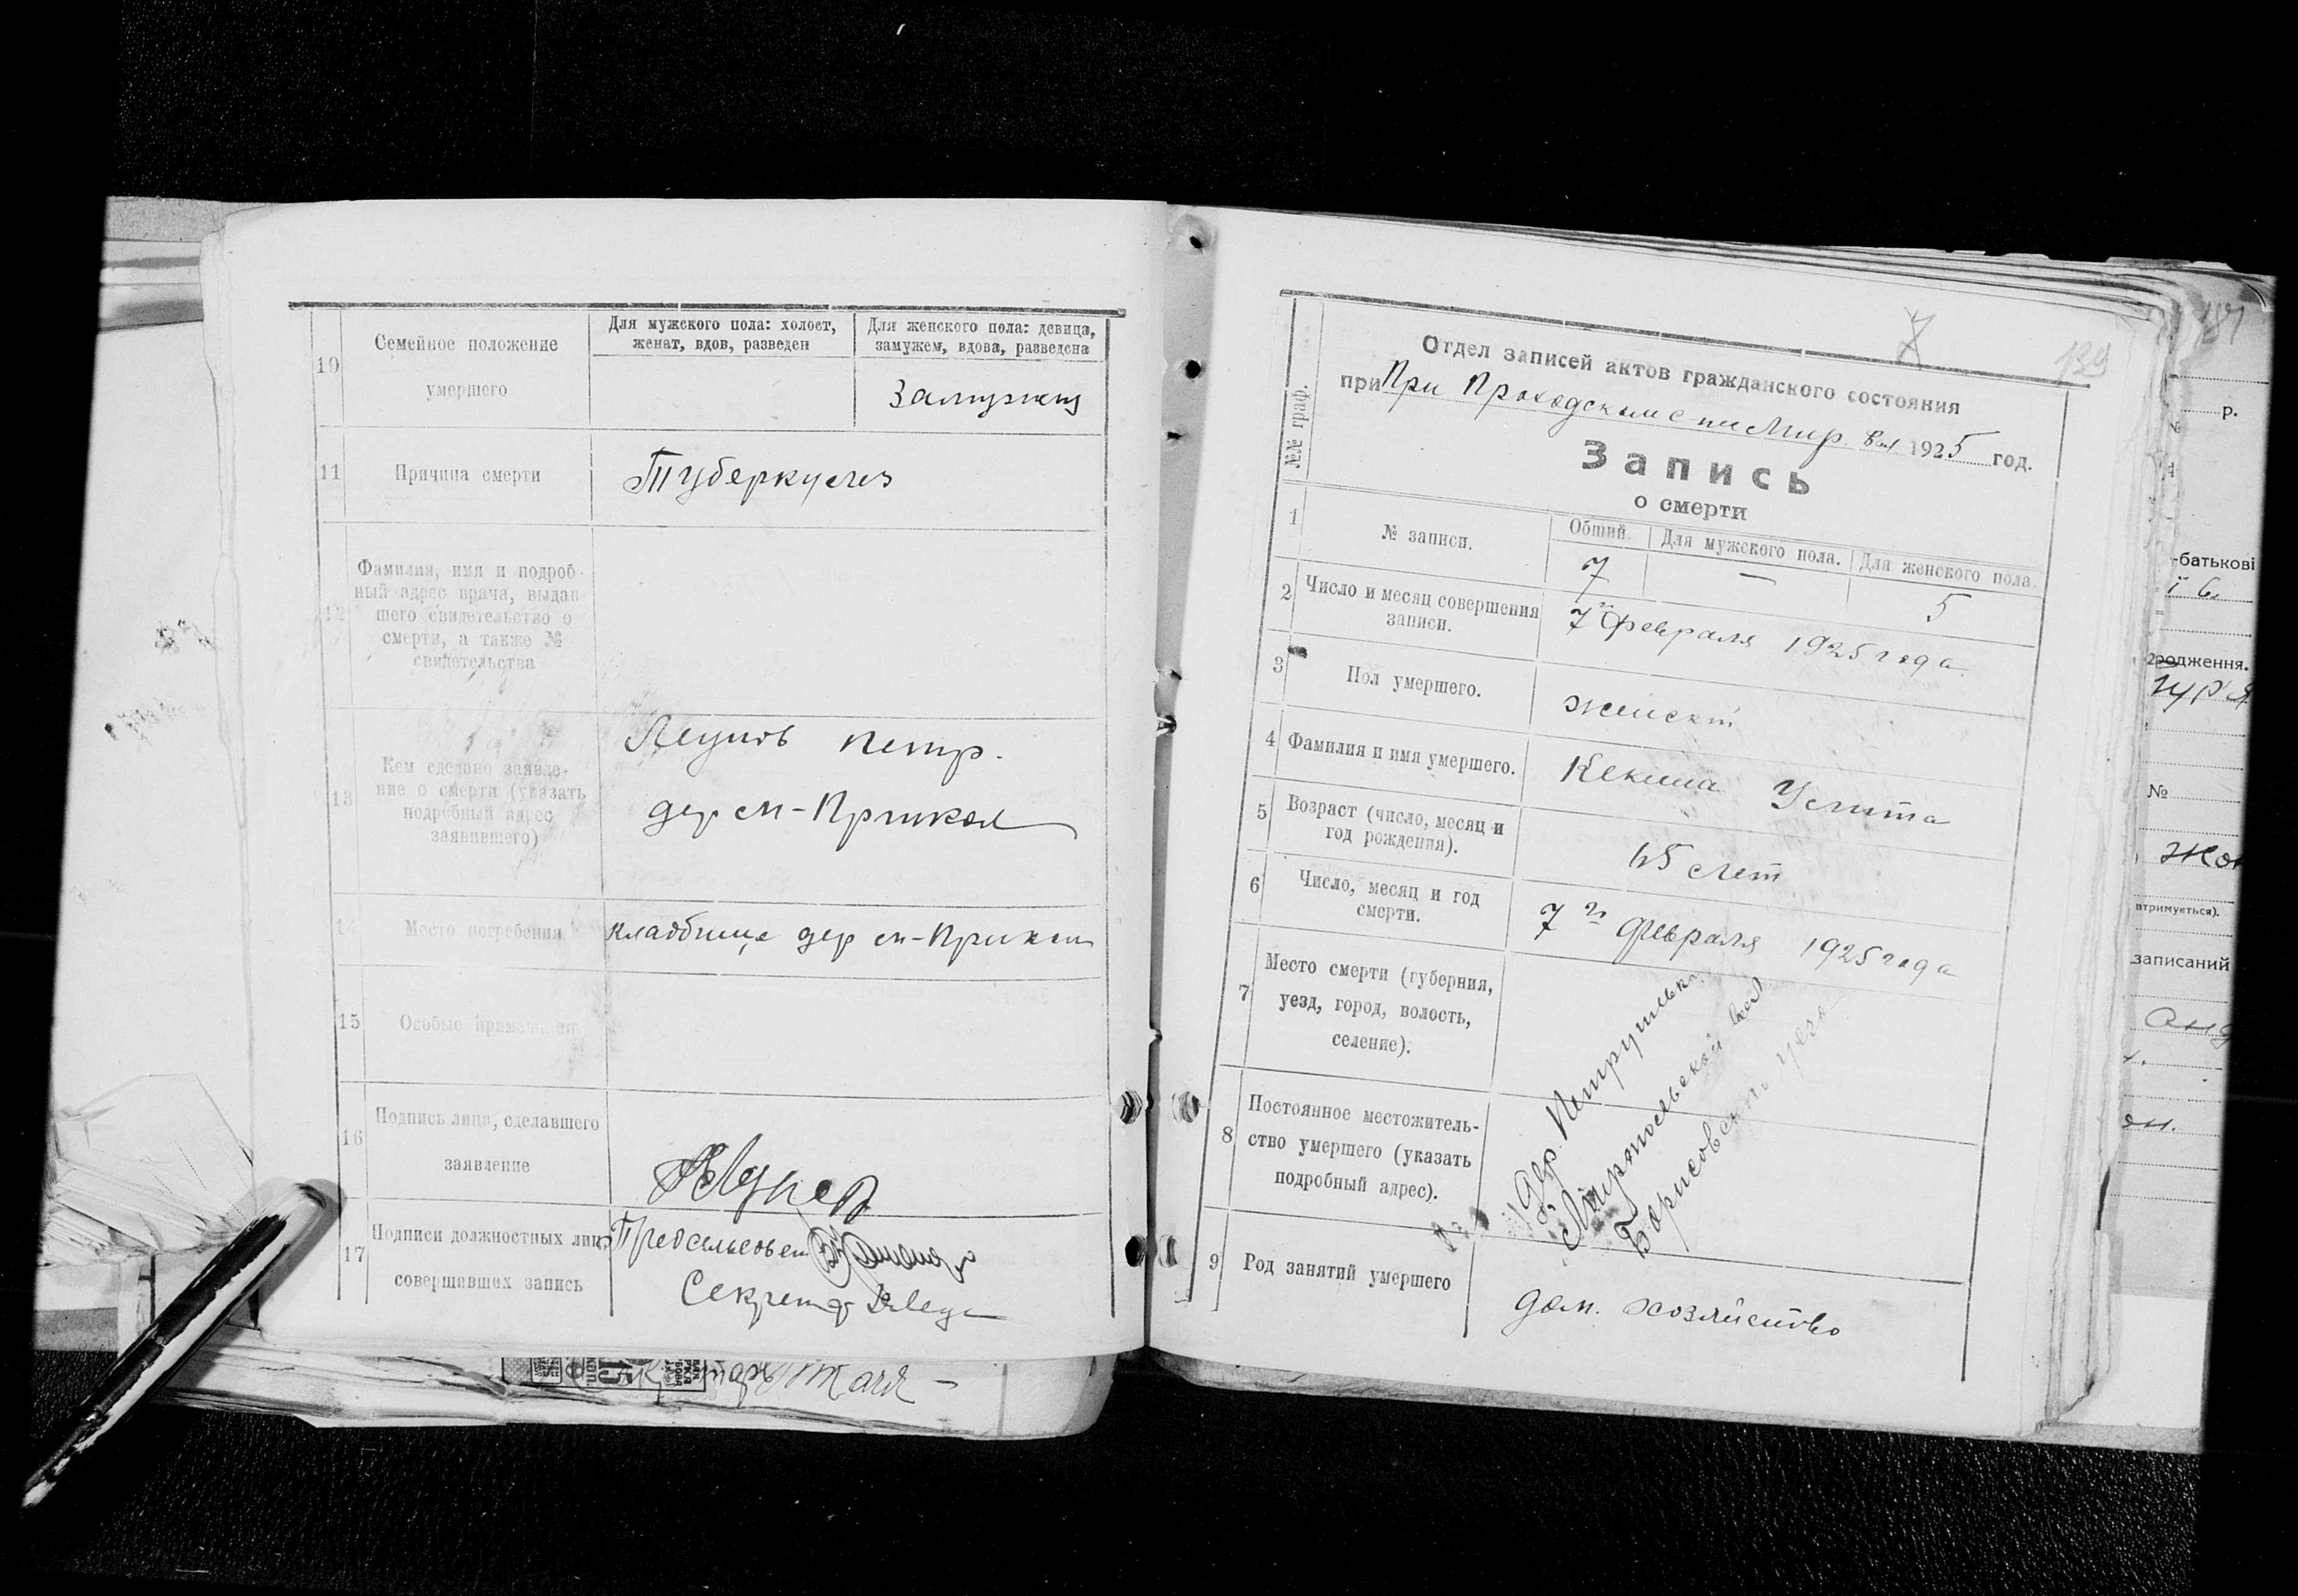 10
Семейное положение
умершего
Для мужского пола: холост,
женат, вдов, разведен
Для женского пола: девица,
замужем, вдова, разведена
Замужем
11
Причина смерти
Туберкулез
12
Фамилия, имя и подроб-
ный адрес врача, выдан-
шего свидетельство о
смерти, а также №
свидетельства
13
Кем сделано заявле-
ние о смерти (указать
подробный адрес
заявившего)
Петр.
дер м-Прикол
14
Место погребения
кладбище дер м-Прикол
15
Особые примечания
16
Подпись лица, сделавшего
заявление
17
Подписи должностных лиц,
совершавших запись
Предсельсовета
Секретар
7
139
№№ граф.
Отдел записей актов гражданского состояния
при При Проходском с Мир. вол 1925 год.
Запись
о смерти
1
№ записи.
Общий.
Для мужского пола.
Для женского пола.
7
—
5
2
Число и месяц совершения
записи.
7го февраля 1925 года
3
Пол умершего.
женск
4
Фамилия и имя умершего.
Кекиша Улита
5
Возраст (число, месяц и
год рождения).
45 лет
6
Число, месяц и год
смерти.
7го февраля 1925 года
7
Место смерти (губерния,
уезд, город, волость,
селение).
8
Постоянное местожитель-
ство умершего (указать
подробный адрес).
дер.
Миропольской вол
9
Род занятий умершего
дом. хозяйство
р.
№
-батькові
родження.
№
втримується).
записаний
15